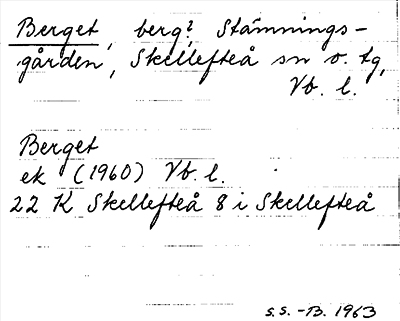 Berget, berg?, Stämnings-
gården, Skellefteå sn o. tg,
Vb. l.
Berget
ek (1960) Vb. l.
22 K Skellefteå 8 i Skellefteå
S.S. -B. 1963